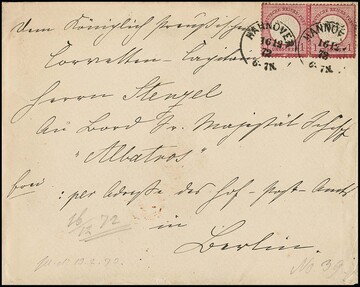 Dem Königlich Preußischen
Corvetten-Capitain
Herrn Stenzel
An Bord Sr. Majestät Schiff
"Albatros"
frei : per Adresse des Hof-Post-Amts
in
Berlin.
HANNOVER
16 12
72
6-7N.
HANNOVER
16 12
72
6-7N.
16/12 72
No 39